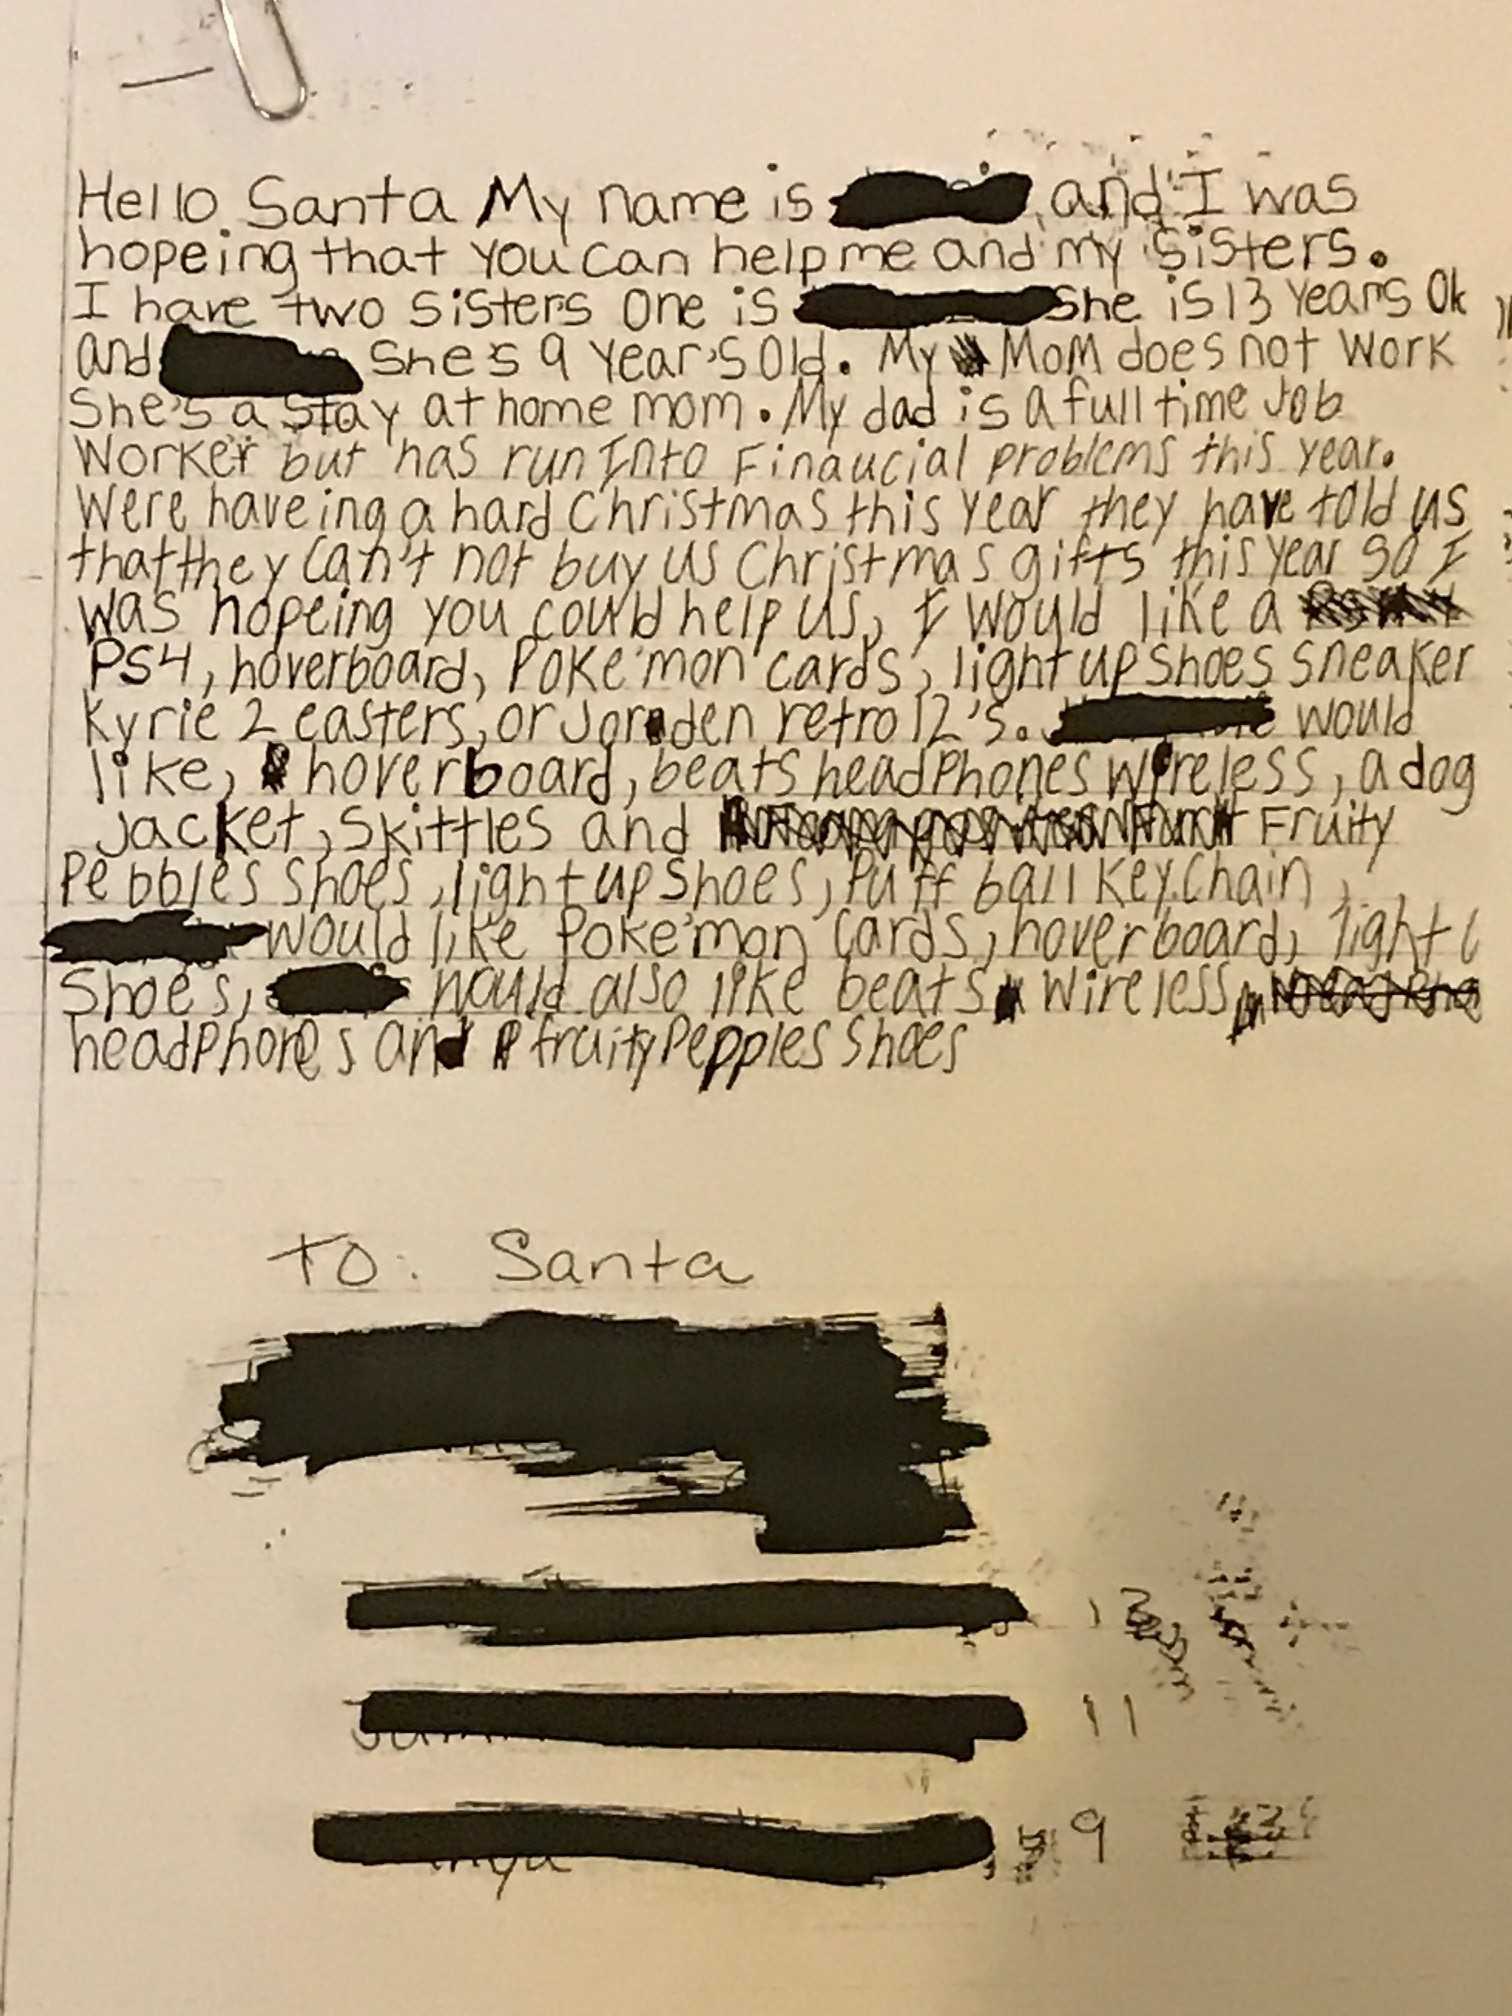 Hello Santa My name is and I was
hopeing that you can help me and my sisters.
I have two sisters One is She is 13 years Ol
and She's 9 year's Old. My Mom does not work
She's a stay at home mom. My dad is a full time Job
Worker but has run Into Finaucial problems this year.
Were haveing a hard Christmas this year they have told us
that they Can't not buy us Christmas gifts this year so I
was hopeing you could help us, I would like a
PS4, hoverboard, Poke'mon cards, light up shoes sneaker
Kyrie 2 easters, or Jorden retro 12's. would
like, hoverboard, beats headphones wireless, a dog
Jacket, Skittles and Fruity
Pebbles Shoes, light up shoes, Puff ball Key Chain,
would like Poke'mon Cards, hoverboard, light
Shoes, would also like beats wireless
headphones and fruity Pepples Shoes
To: Santa
13
11
9